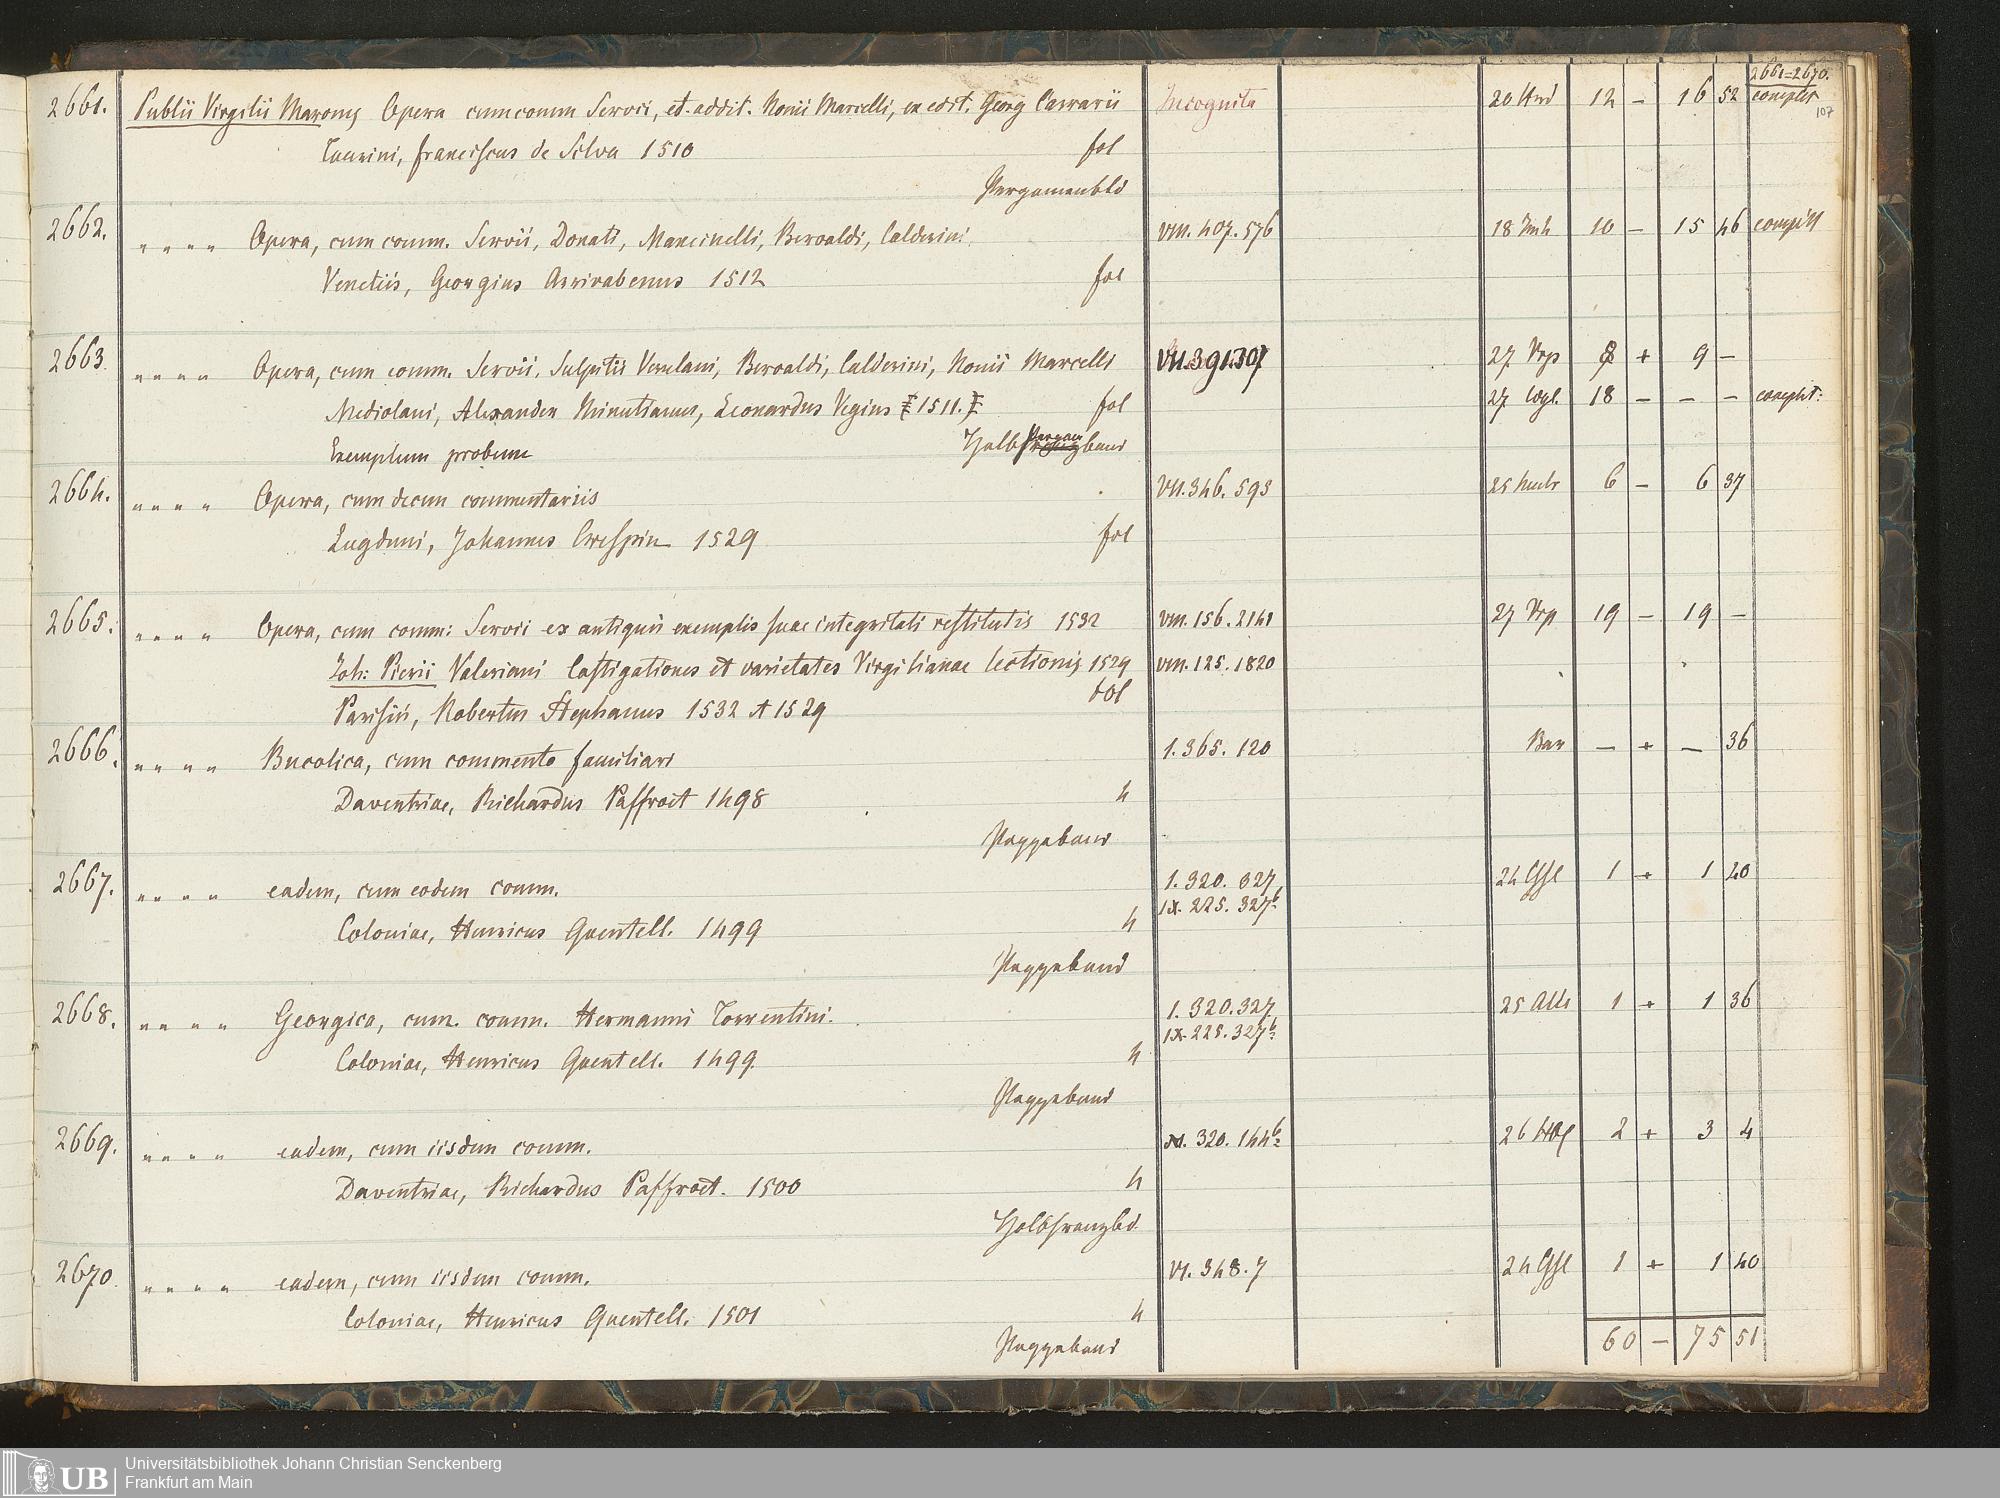 2661=2670.
complet
107
2661. Publii Virgilii Maronis Opera cum comm Servii, et addit. Nonii Marcelli, ex edit. Georg Carrarii Incognita 12 — 16 52
Taurini, franciscus de Silva 1510 fol
Pergamentbd
2662. " " " " Opera, cum comm. Servii, Donati, Mancinelli, Beroaldi, Calderini. VIII. 407. 576 10 — 15 46 complt
Venetiis, Georgius Arrivabenus 1512 fol
2663. " " " " Opera, cum comm. Servii, Sulpitii Verulani, Beroaldi, Calderini, Nonii Marcelli VII. 391.307 27 + 9 —
Mediolani, Alexander Minutianus, Leonardus Vegius [1511.] fol 27 18 — — — complet:
Exemplum probum Halb band
2664. " " " " Opera, cum decem commentariis VII. 346. 593 25 6 — 6 37
Lugduni, Johannes Crespin 1529 fol
2665. " " " " Opera, cum comm: Servii ex antiquis exemplis suae integritati restitutis 1532 VIII. 156. 2141 27 19 — 19 —
Joh: Pierii Valeriani Castigationes et varietates Virgilianae lectionis 1529 VIII. 125. 1820
fol
Parisiis, Robertus Stephanus 1532 et 1529
2666. " " " " Bucolica, cum commento familiari 1. 365. 120 — + — 36
Daventriae, Richardus Paffroet 1498 4
Pappband
2667. " " " " eadem, cum eodem comm. 1. 320. 327 24 1 + 1 20
IX. 225. 327b
Coloniae, Henricus Quentell. 1499 4
Pappband
2668. " " " " Georgica, cum. comm. Hermanni Torrentini. 1. 320. 327 25 1 + 1 36
IX. 225. 327b
Coloniae, Henricus Quentell. 1499. 4
Pappband
2669. " " " " eadem, cum iisdem comm. 320. 144b 26 2 + 3 4
Daventriae, Richardus Paffroet. 1500 4
Halbfranzbd.
2670. " " " " eadem, cum iisdem comm. VI. 348. 7 24 1 + 1 40
Coloniae, Henricus Quentell. 1501 4
Pappband 60 — 75 51
UB
Universitätsbibliothek Johann Christian Senckenberg
Frankfurt am Main